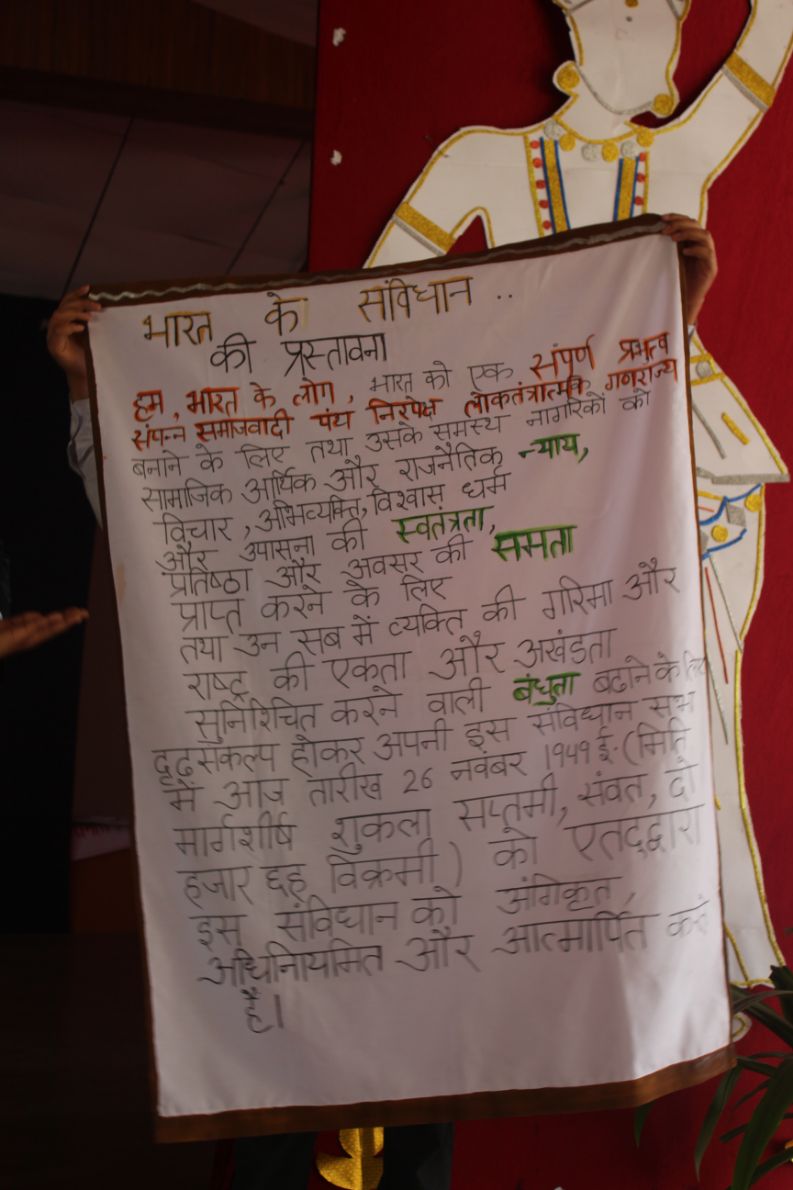 भारत के संविधान ..
की प्रस्तावना
हम, भारत के लोग, भारत को एक संपूर्ण प्रभुत्व
संपन्न समाजवादी पंथ निरपेक्ष लोकतंत्रात्मक गणराज्य
बनाने के लिए तथा उसके समस्य नागरिकों को
सामाजिक आर्थिक और राजनैतिक न्याय,
विचार, अभिव्यक्ति, विश्वास धर्म
और उपासना की स्वतंत्रता,
प्रतिष्ठा और अवसर की समता
प्राप्त करने के लिए
तथा उन सब में व्यक्ति की गरिमा और
राष्ट्र की एकता और अखंडता
सुनिश्चित करने वाली बंधुता बढाने के लिए
दृढसंकल्प होकर अपनी इस संविधान सभ
में आज तारीख 26 नवंबर 1949 ई. (मिति
मार्गशीर्ष शुकला सप्तमी, संवत, दो
हजार छह विक्रमी) को एतद्द्वारा
इस संविधान को अंगिकृत,
अधिनियमित और आत्मार्पित करते
है।